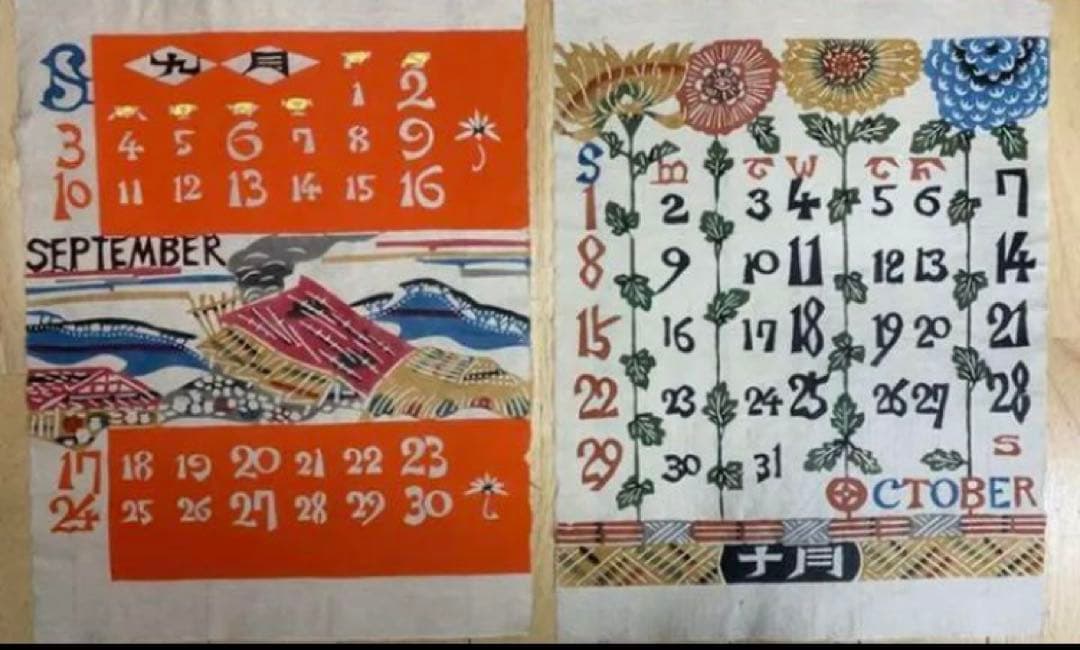 九月
S 1 2
3 4 5 6 7 8 9
10 11 12 13 14 15 16
SEPTEMBER
17 18 19 20 21 22 23
24 25 26 27 28 29 30
S m T W T F
1 2 3 4 5 6 7
8 9 10 11 12 13 14
15 16 17 18 19 20 21
22 23 24 25 26 27 28
29 30 31 S
OCTOBER
十月